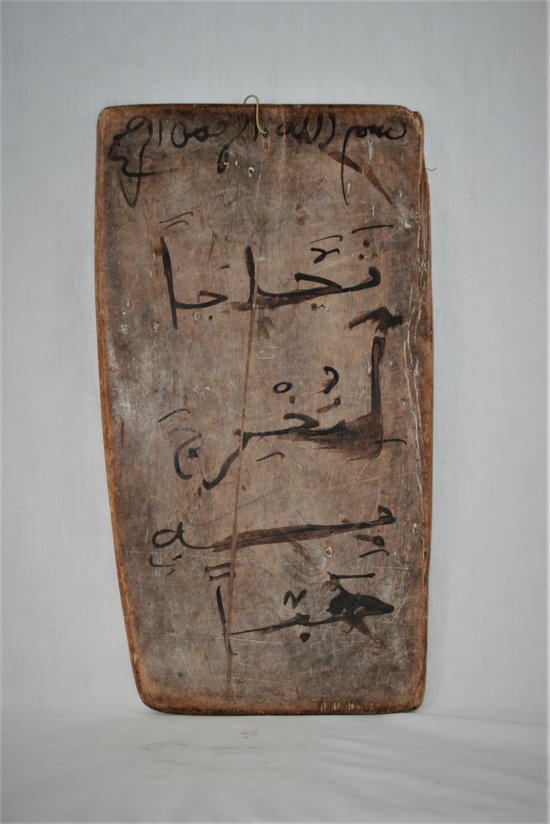 بسم الله الرحمن الرحيم
ثَجَّاجاً
لِنُخْرِجَ
بِهِ
حَبّاً